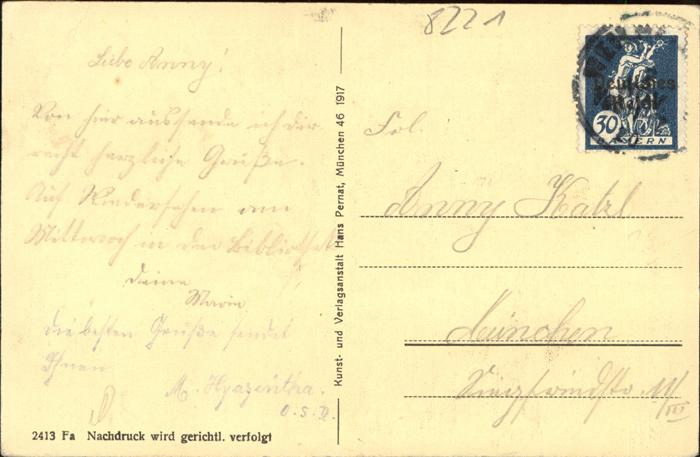 8221
Liebe Anny!
Von hier aus sende ich dir
recht herzliche Grüße.
Auf Wiedersehen am
Mittwoch in der Bibliothek
Deine
Marie
die besten Grüße sendet
Ihnen
M. Hyazintha.
O.S.D.
2413 Fa Nachdruck wird gerichtl. verfolgt
Kunst- und Verlagsanstalt Hans Pernat, München 46 1917
Deutsches
Reich
30
BAYERN
Frl.
Anny Katzl
München